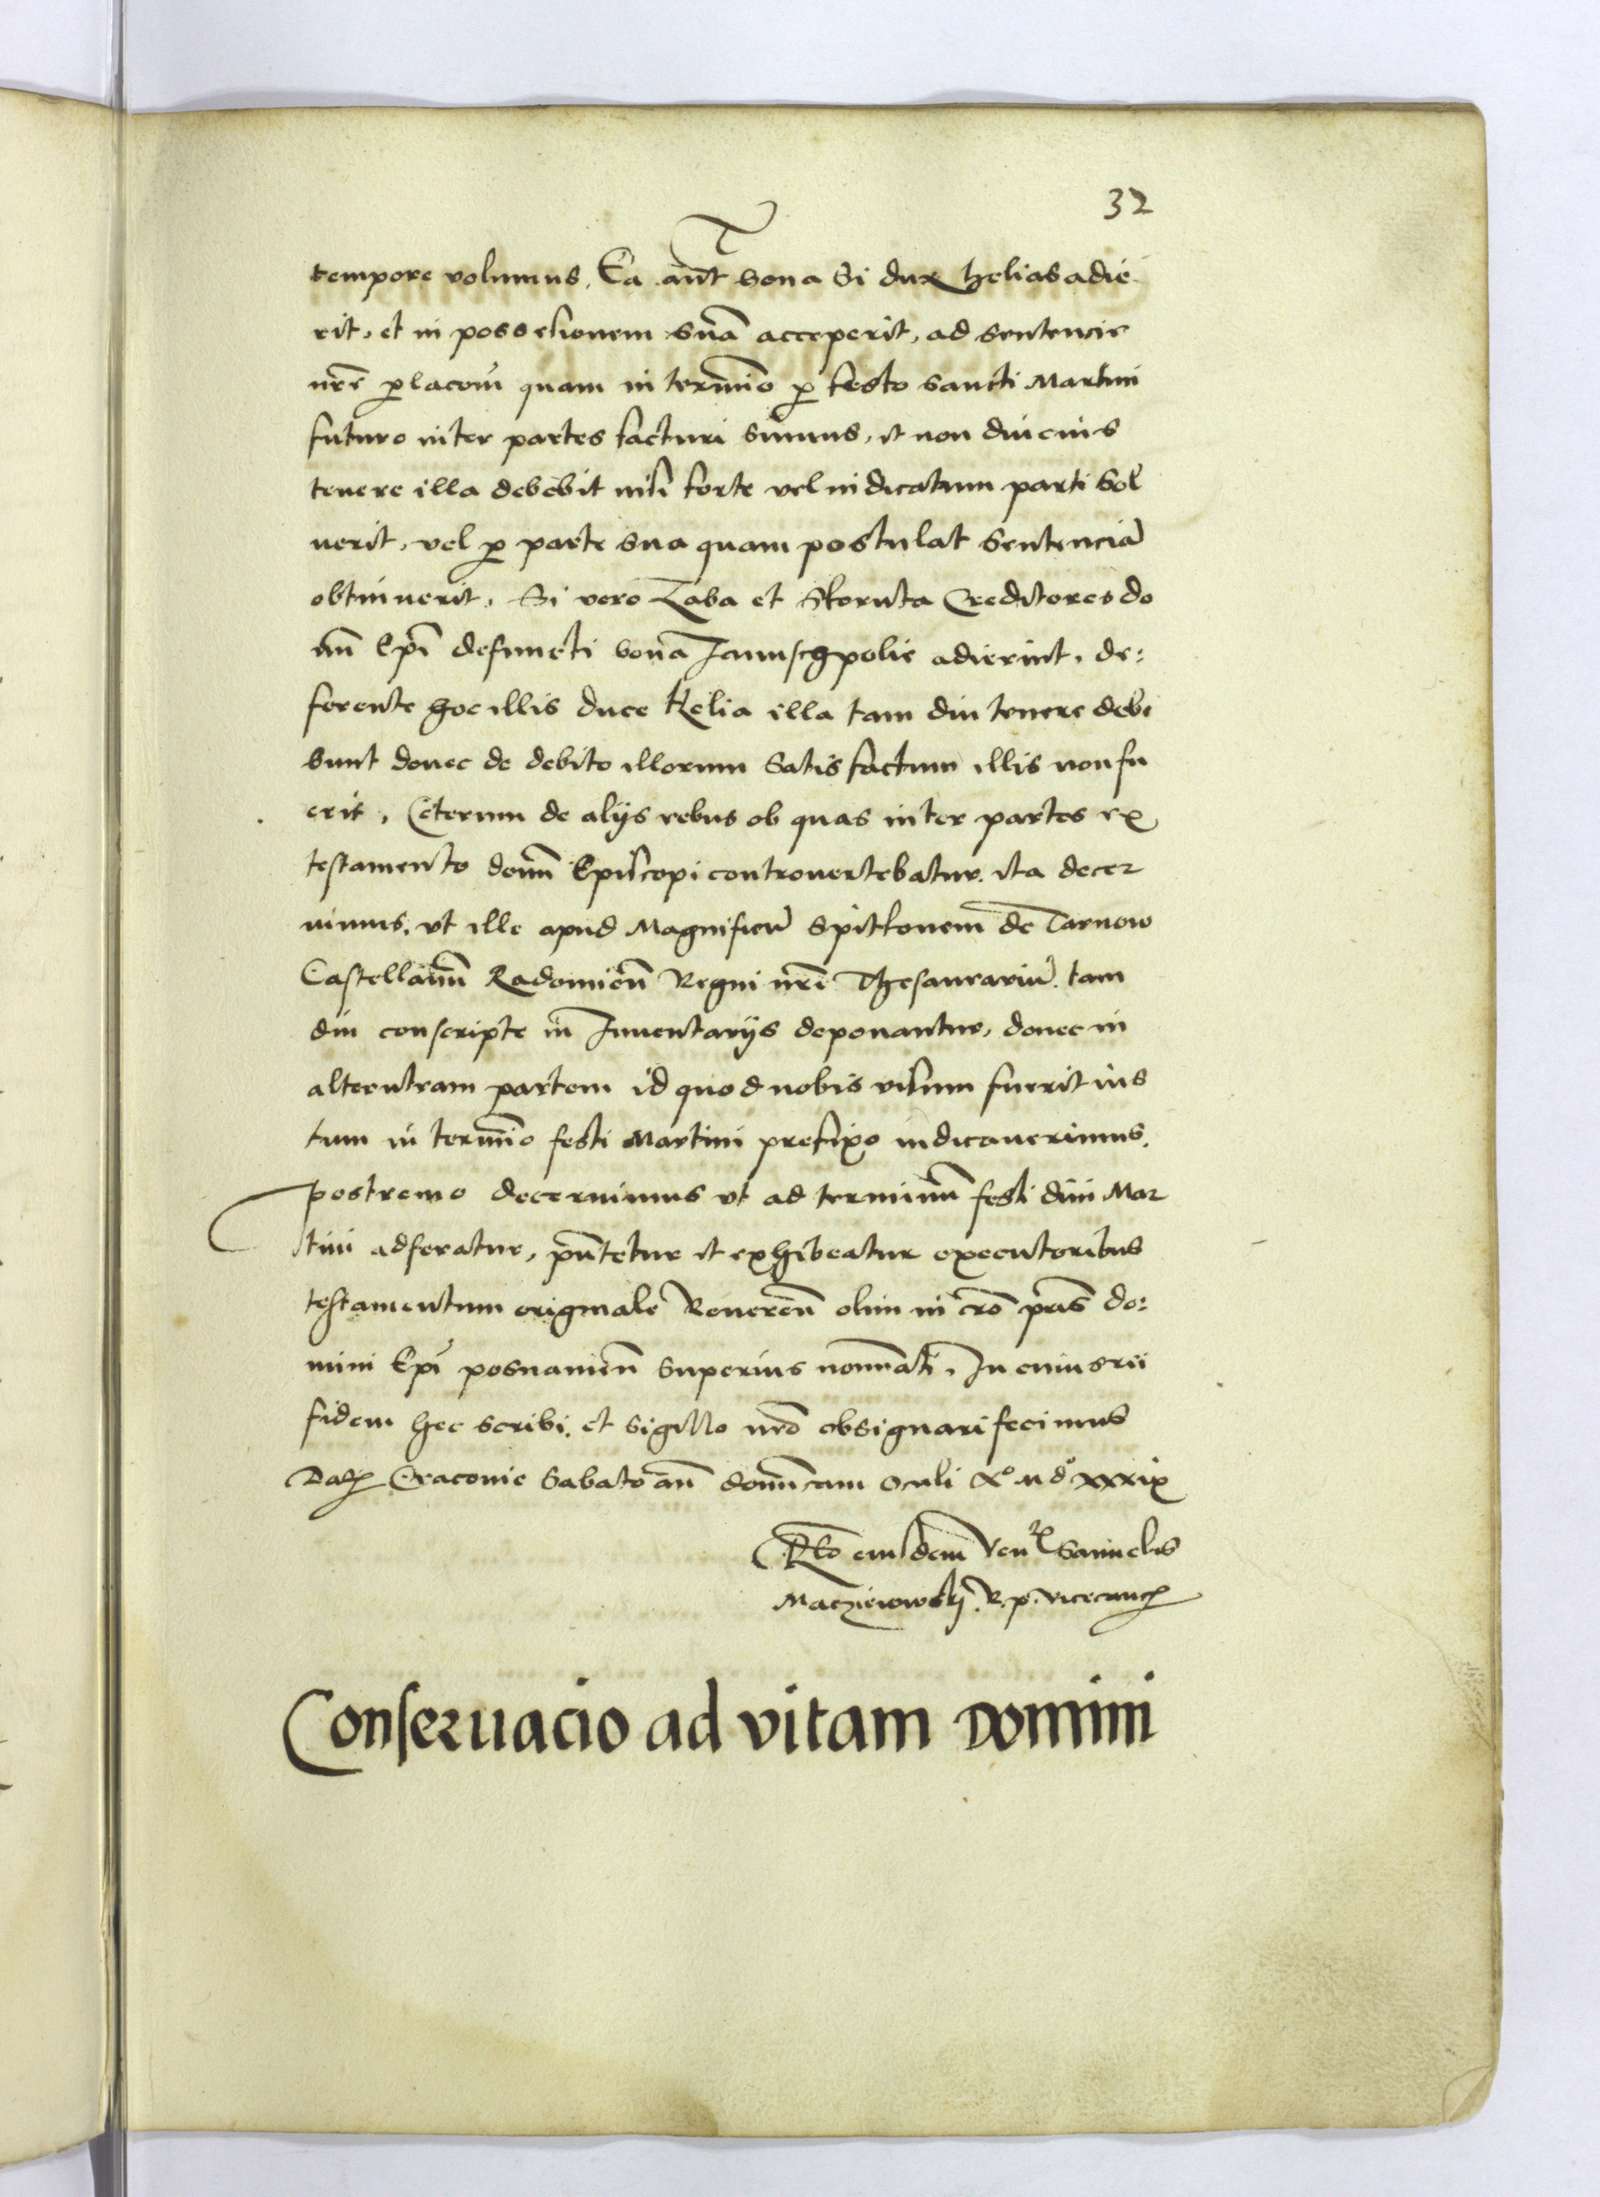 32
tempore volumus, Ea aut̄ bona Si dux Helias adie
rit, et in possessionem suā acceperit, ad sentencie
nrē ꝓlacoī quam in termīo ꝓ festo sancti Martini
futuro inter partes facturi sumus, et non diucius
tenere illa debebit nisi forte vel iudicatum parti Sol
uerit, vel ꝓ parte sua quam postulat Sentenciā
obtinuerit, Si vero Zaba et Skoruta Creditores do
mī Epī defuncti bona Januschpolie adierint, de:
ferente hoc illis duce Helia illa tam diu tenere debe
bunt donec de debito illorum Satisfactum illis non fu
erit, Ceterum de alijs rebus ob quas inter partes ex
testamento domī Episcopi controuertebatur, ita decer
nimus, vt ille apud Magnificū Spitkonem de Tarnow
Castellanū Radomien̄ Regni nrī Thesaurariū, tam
diu conscripte in Inuentarijs deponantur, donec in
alterutram partem id quod nobis visum fuerit ius
tum in termīo festi Martini prefixo iudicauerimus,
postremo decernimus vt ad terminū festi diui Mar
tini adferatur, pn̄tetur et exhibeatur executoribus
testamentum originale Reueren̄ olim in cr̄o pr̄is do:
mini Epī posnanien̄ superius nomīati, In cuius rei
fidem hec scribi, et sigillo nrō obsignari fecimus
Datꝭ Cracouie Sabato an̄ domīcam Oculi Aº M dº xxxix
Rlō eiusdem Ven̄ Samuelis
Maczieiowskj R. p. vicecancꝭ
Conseruacio ad vitam Domini